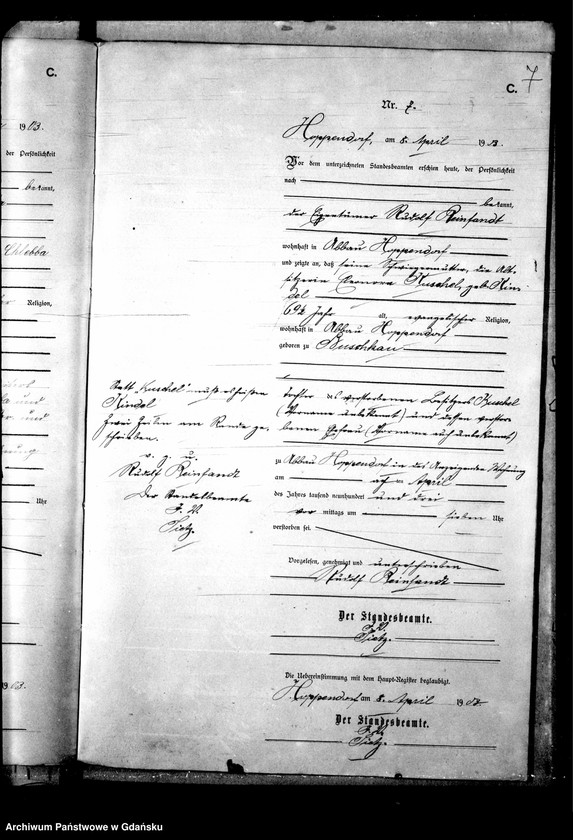 C.
1903.
der Persönlichkeit
bekannt,
Chlebba
Religion,
Uhr
C. 7
Nr. 7.
Hoppendorf, am 8. April 1903.
Vor dem unterzeichneten Standesbeamten erschien heute, der Persönlichkeit
nach
bekannt,
der Eigentümer Rudolf Reinfandt
wohnhaft in Abbau Hoppendorf
und zeigte an, daß seine Schwiegermutter, die Alt-
sitzerin Kuschel, geb. Kin-
del
69½ Jahr alt, evangelischer Religion,
wohnhaft in Abbau Hoppendorf
geboren zu Buschkau
Tochter des verstorbenen Besitzers Kuschel
(Vorname unbekannt) und dessen verstor-
benen Ehefrau (Vorname auch unbekannt)
Statt "Kuschel" muß es heißen
Kindel
Zwei Zeilen am Rande ge-
schrieben.
v. g. u.
Rudolf Reinfandt
Der Standesbeamte
J. V.
Tietz.
zu Abbau Hoppendorf in des Anzeigenden Wohnung
am April
des Jahres tausend neunhundert und drei
vor mittags um sieben Uhr
verstorben sei.
Vorgelesen, genehmigt und unterschrieben
Rudolf Reinfandt
Der Standesbeamte.
J. V.
Tietz.
Die Uebereinstimmung mit dem Haupt-Register beglaubigt.
Hoppendorf am 8. April 1903
Der Standesbeamte.
J. V.
Tietz.
1903.
Archiwum Państwowe w Gdańsku